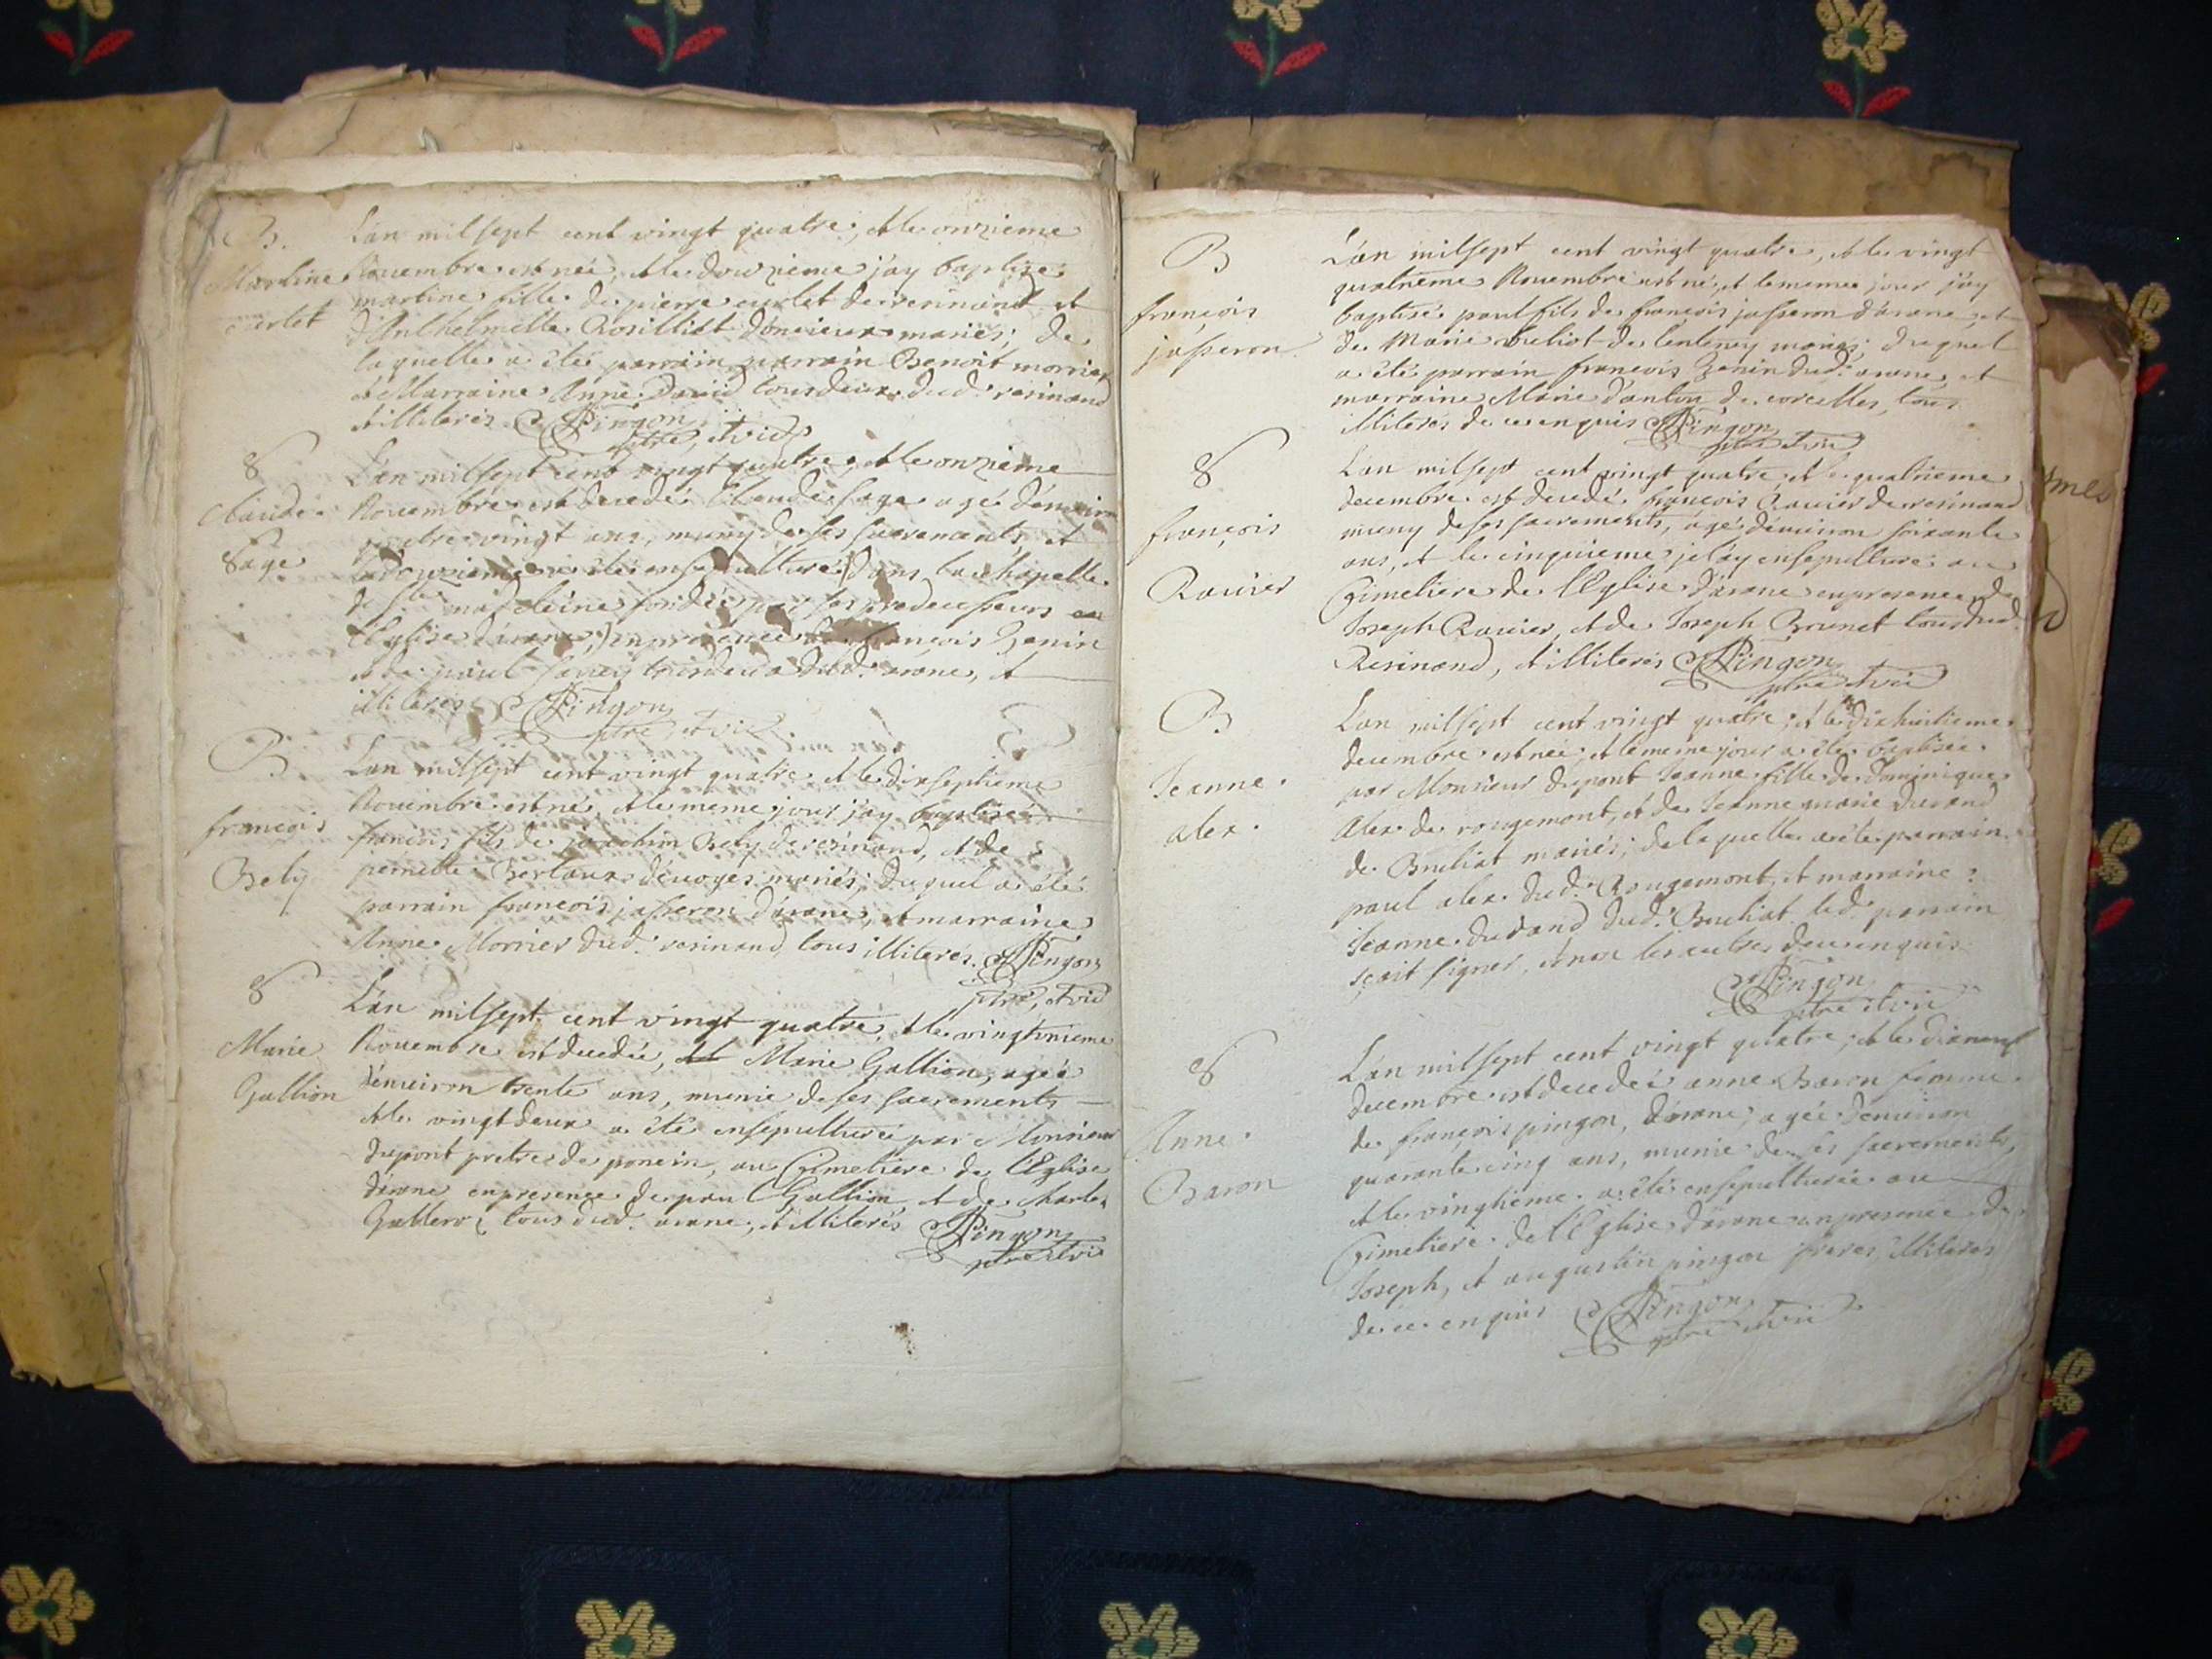 B.
Martine
curlet
L'an mil sept cent vingt quatre, et le onzieme
Nouembre est née, et le douzieme j'ay baptizé
martine fille de pierre curlet de resinand et
d'Anthelmette Rosilliat d'oncieux mariés; de
laquelle a été parrain parrain Benoit morrier
et Marraine Anne David tous deux dud. resinand
et illiterés Pingon
ptre, et vic
S
Claude
Sage
L'an mil sept cent vingt quatre, et le onzieme
Nouembre est decedé Claude Sage agé d'enuiron
quatre vingt ans, muny de ses sacrements, et
le douzieme a été ensepulturé dans la chapelle
de Ste madeleine fondée par ses predecesseurs en
l'Eglise d'arane, en presence de françois Genin
et de paul tous deux dud. arane, et
illiterés Pingon
ptre et vic.
B
francois
Bely
L'an mil sept cent vingt quatre et le dix septieme
Nouembre est né, et le meme jour j'ay baptisé
francois fils de joachim Bely de resinand, et de
pernette Bertaux d'euoges mariés; du quel a été
parrain francois jasseron d'arane, et marraine
Anne Morrier dud. resinand tous illiterés. Pingon
ptre, et vic
S
Marie
Gallion
L'an mil sept cent vingt quatre, et le vingt vnieme
Nouembre est decedée, Marie Gallion, agée
d'enuiron trente ans, munie de ses sacrements
et le vingt deux a été ensepulturée par Monsieur
Dupont pretre de poncin, au Cimetiere de l'Eglise
d'arane en presence de paul Gallion et de charle
tous dud. arane, et illiterés Pingon
ptre et vic
B
françois
jasseron
L'an mil sept cent vingt quatre, et le vingt
quatrieme Nouembre est né, et le meme jour j'ay
baptisé paul fils de francois jasseron d'arane, et
de Marie de mariés; du quel
a été parrain francois Genin dud. arane, et
marraine Marie d'anton de corcelles, tous
illiterés de ce enquis Pingon
ptre et vic
S
françois
Rauier
L'an mil sept cent vingt quatre, et le quatrieme
decembre est decedé françois Rauier de resinand
muny de ses sacrements, agé d'enuiron soixante
ans, et le cinquieme je l'ay ensepulturé au
Cimetiere de l'Eglise d'arane en presence de
Joseph Rauier, et de Joseph Brunet tous dud.
Resinand, et illiterés Pingon
ptre et vic
B
Jeanne
alex.
L'an mil sept cent vingt quatre, et le dix huitieme
decembre est née, et le meme jour a été baptisée
par Monsieur dupont Jeanne fille de dominique
Alex de rougemont, et de Jeanne marie durand
de Brehiat mariés; de laquelle a été parrain
paul alex dud. Rougemont, et marraine
Jeanne durand dud. led. parrain
sçait signer, et non les autres de ce enquis
Pingon
ptre et vic
S
Anne
Baron
L'an mil sept cent vingt quatre, et le dix neuf
decembre est decedée anne Baron femme
de françois pingon, d'arane, agée d'enuiron
quarante cinq ans, munie de ses sacrements,
et le vingtieme a été ensepulturée au
Cimetiere de l'Eglise d'arane en presence de
Joseph, et augustin pingon freres, illiterés
de ce enquis Pingon
ptre et vic